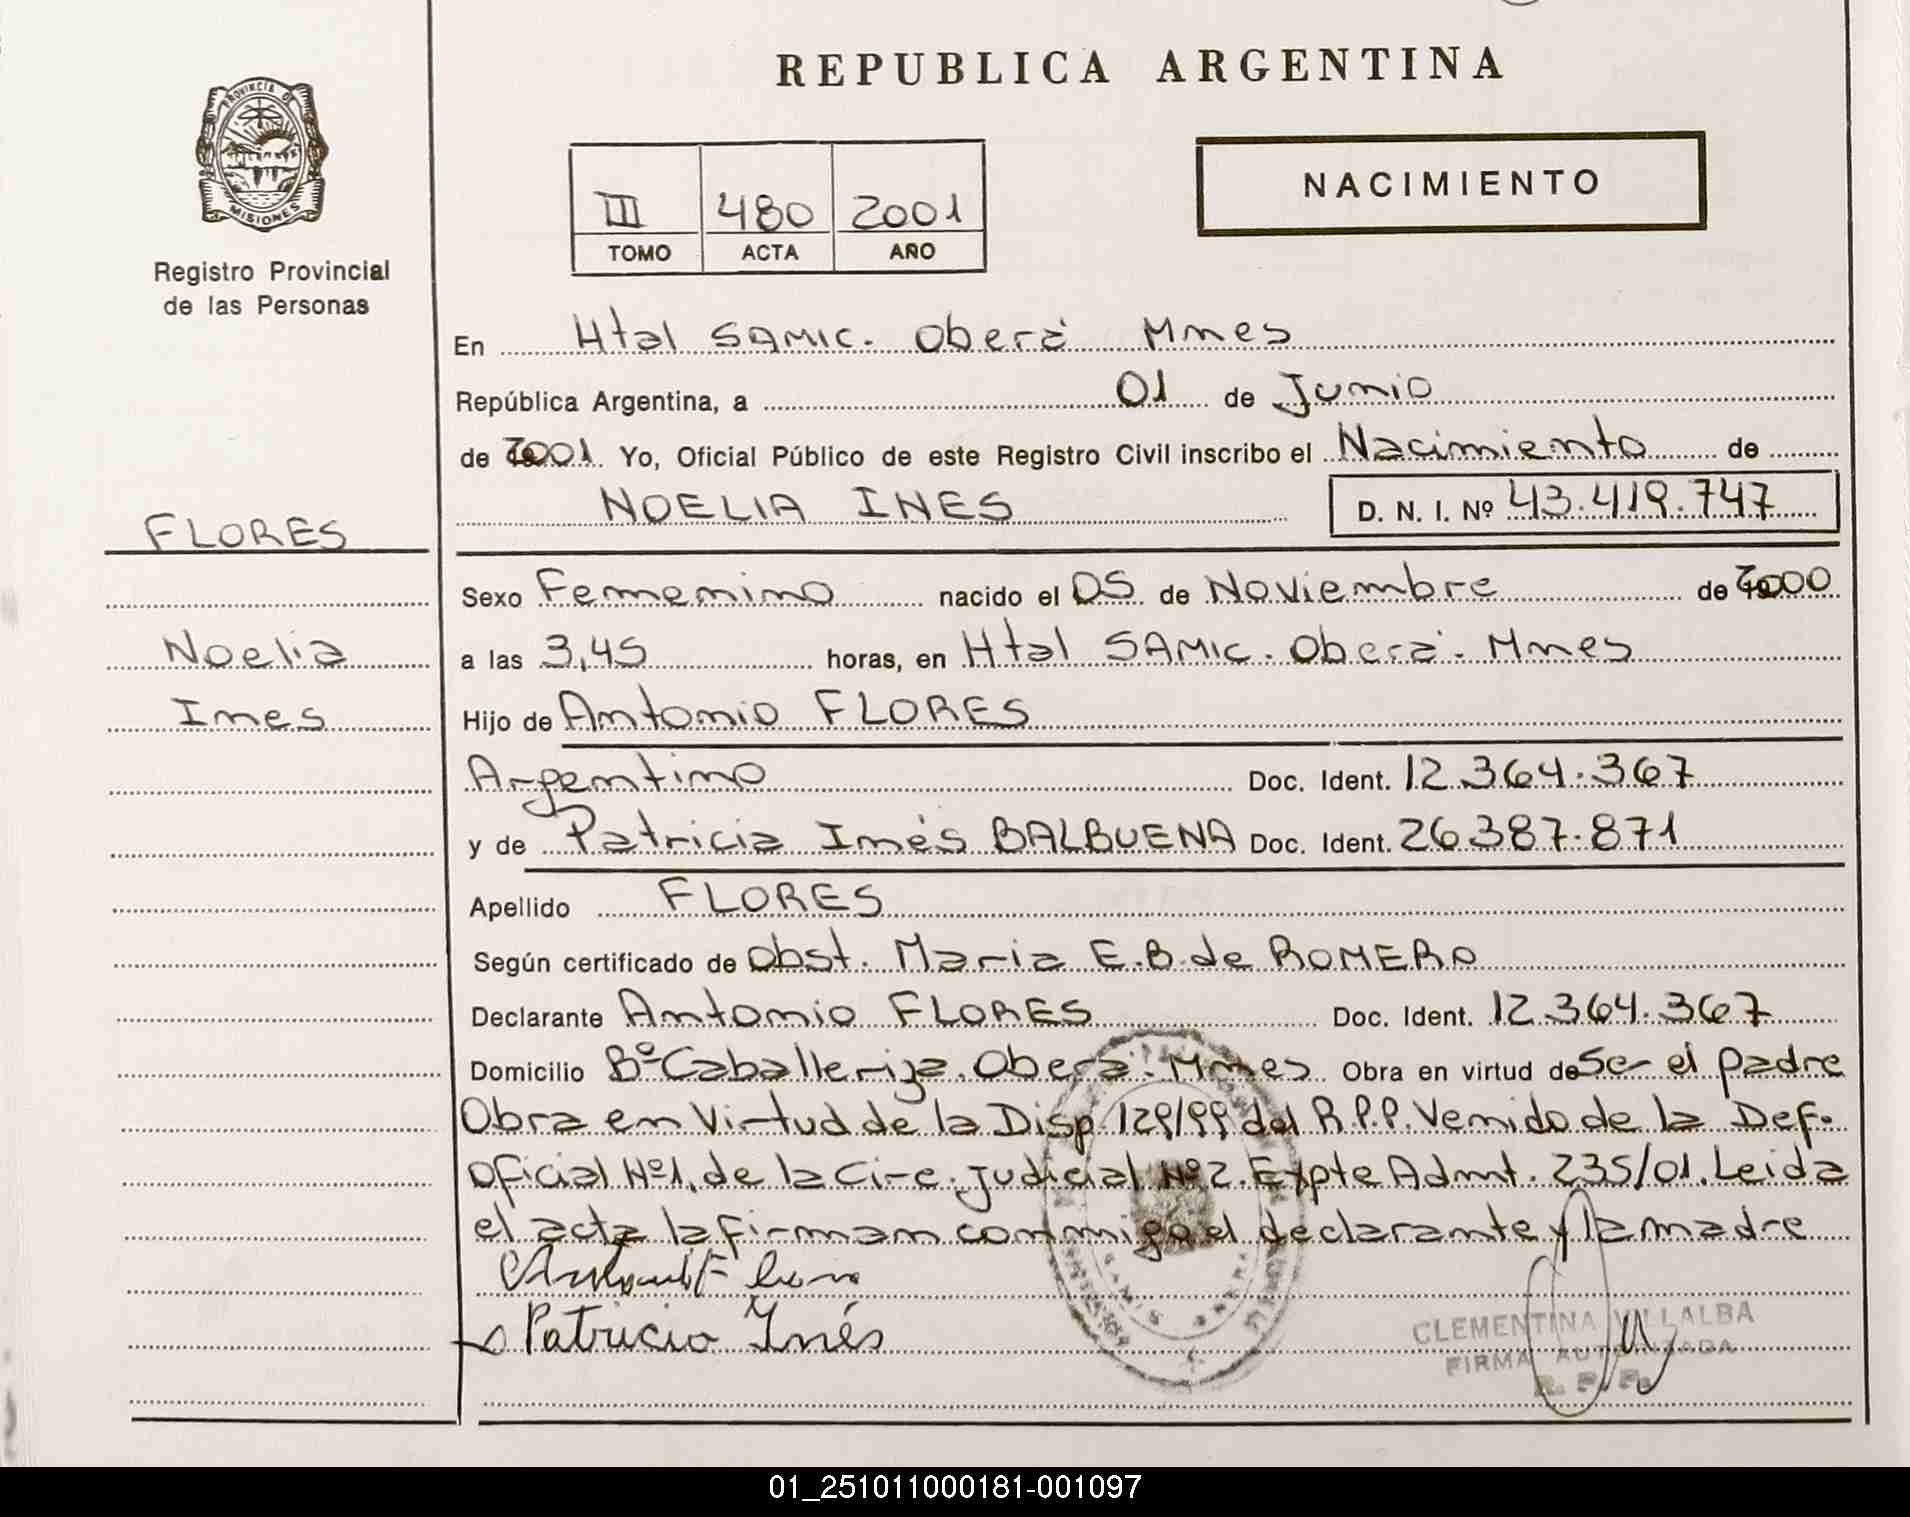 REPUBLICA ARGENTINA
PROVINCIA DE
MISIONES
Registro Provincial
de las Personas
III 480 2001
TOMO ACTA AÑO
NACIMIENTO
En Htal SAMIC. Oberá Mnes
República Argentina, a 01 de Junio
de 2001. Yo, Oficial Público de este Registro Civil inscribo el Nacimiento de
NOELIA INES D. N. I. Nº 43.419.747
FLORES
Noelia
Ines
Sexo Femenino nacido el 05 de Noviembre de 2000
a las 3,45 horas, en Htal SAMIC. Oberá. Mnes
Hijo de Antonio FLORES
Argentino Doc. Ident. 12.364.367
y de Patricia Inés BALBUENA Doc. Ident. 26.387.871
Apellido FLORES
Según certificado de Obst. Maria E.B. de ROMERO
Declarante Antonio FLORES Doc. Ident. 12.364.367
Domicilio Bº Caballeriza. Oberá. Mnes Obra en virtud de Ser el padre
Obra en Virtud de la Disp. 129/99 del R.P.P. Venido de la Def.
Oficial Nº1, de la Circ. Judicial Nº2. Expte Admt. 235/01. Leida
el acta la firman conmigo el declarante y la madre
Patricia Inés
CLEMENTINA VILLALBA
FIRMA AUTORIZADA
R. P. P.
01_251011000181-001097